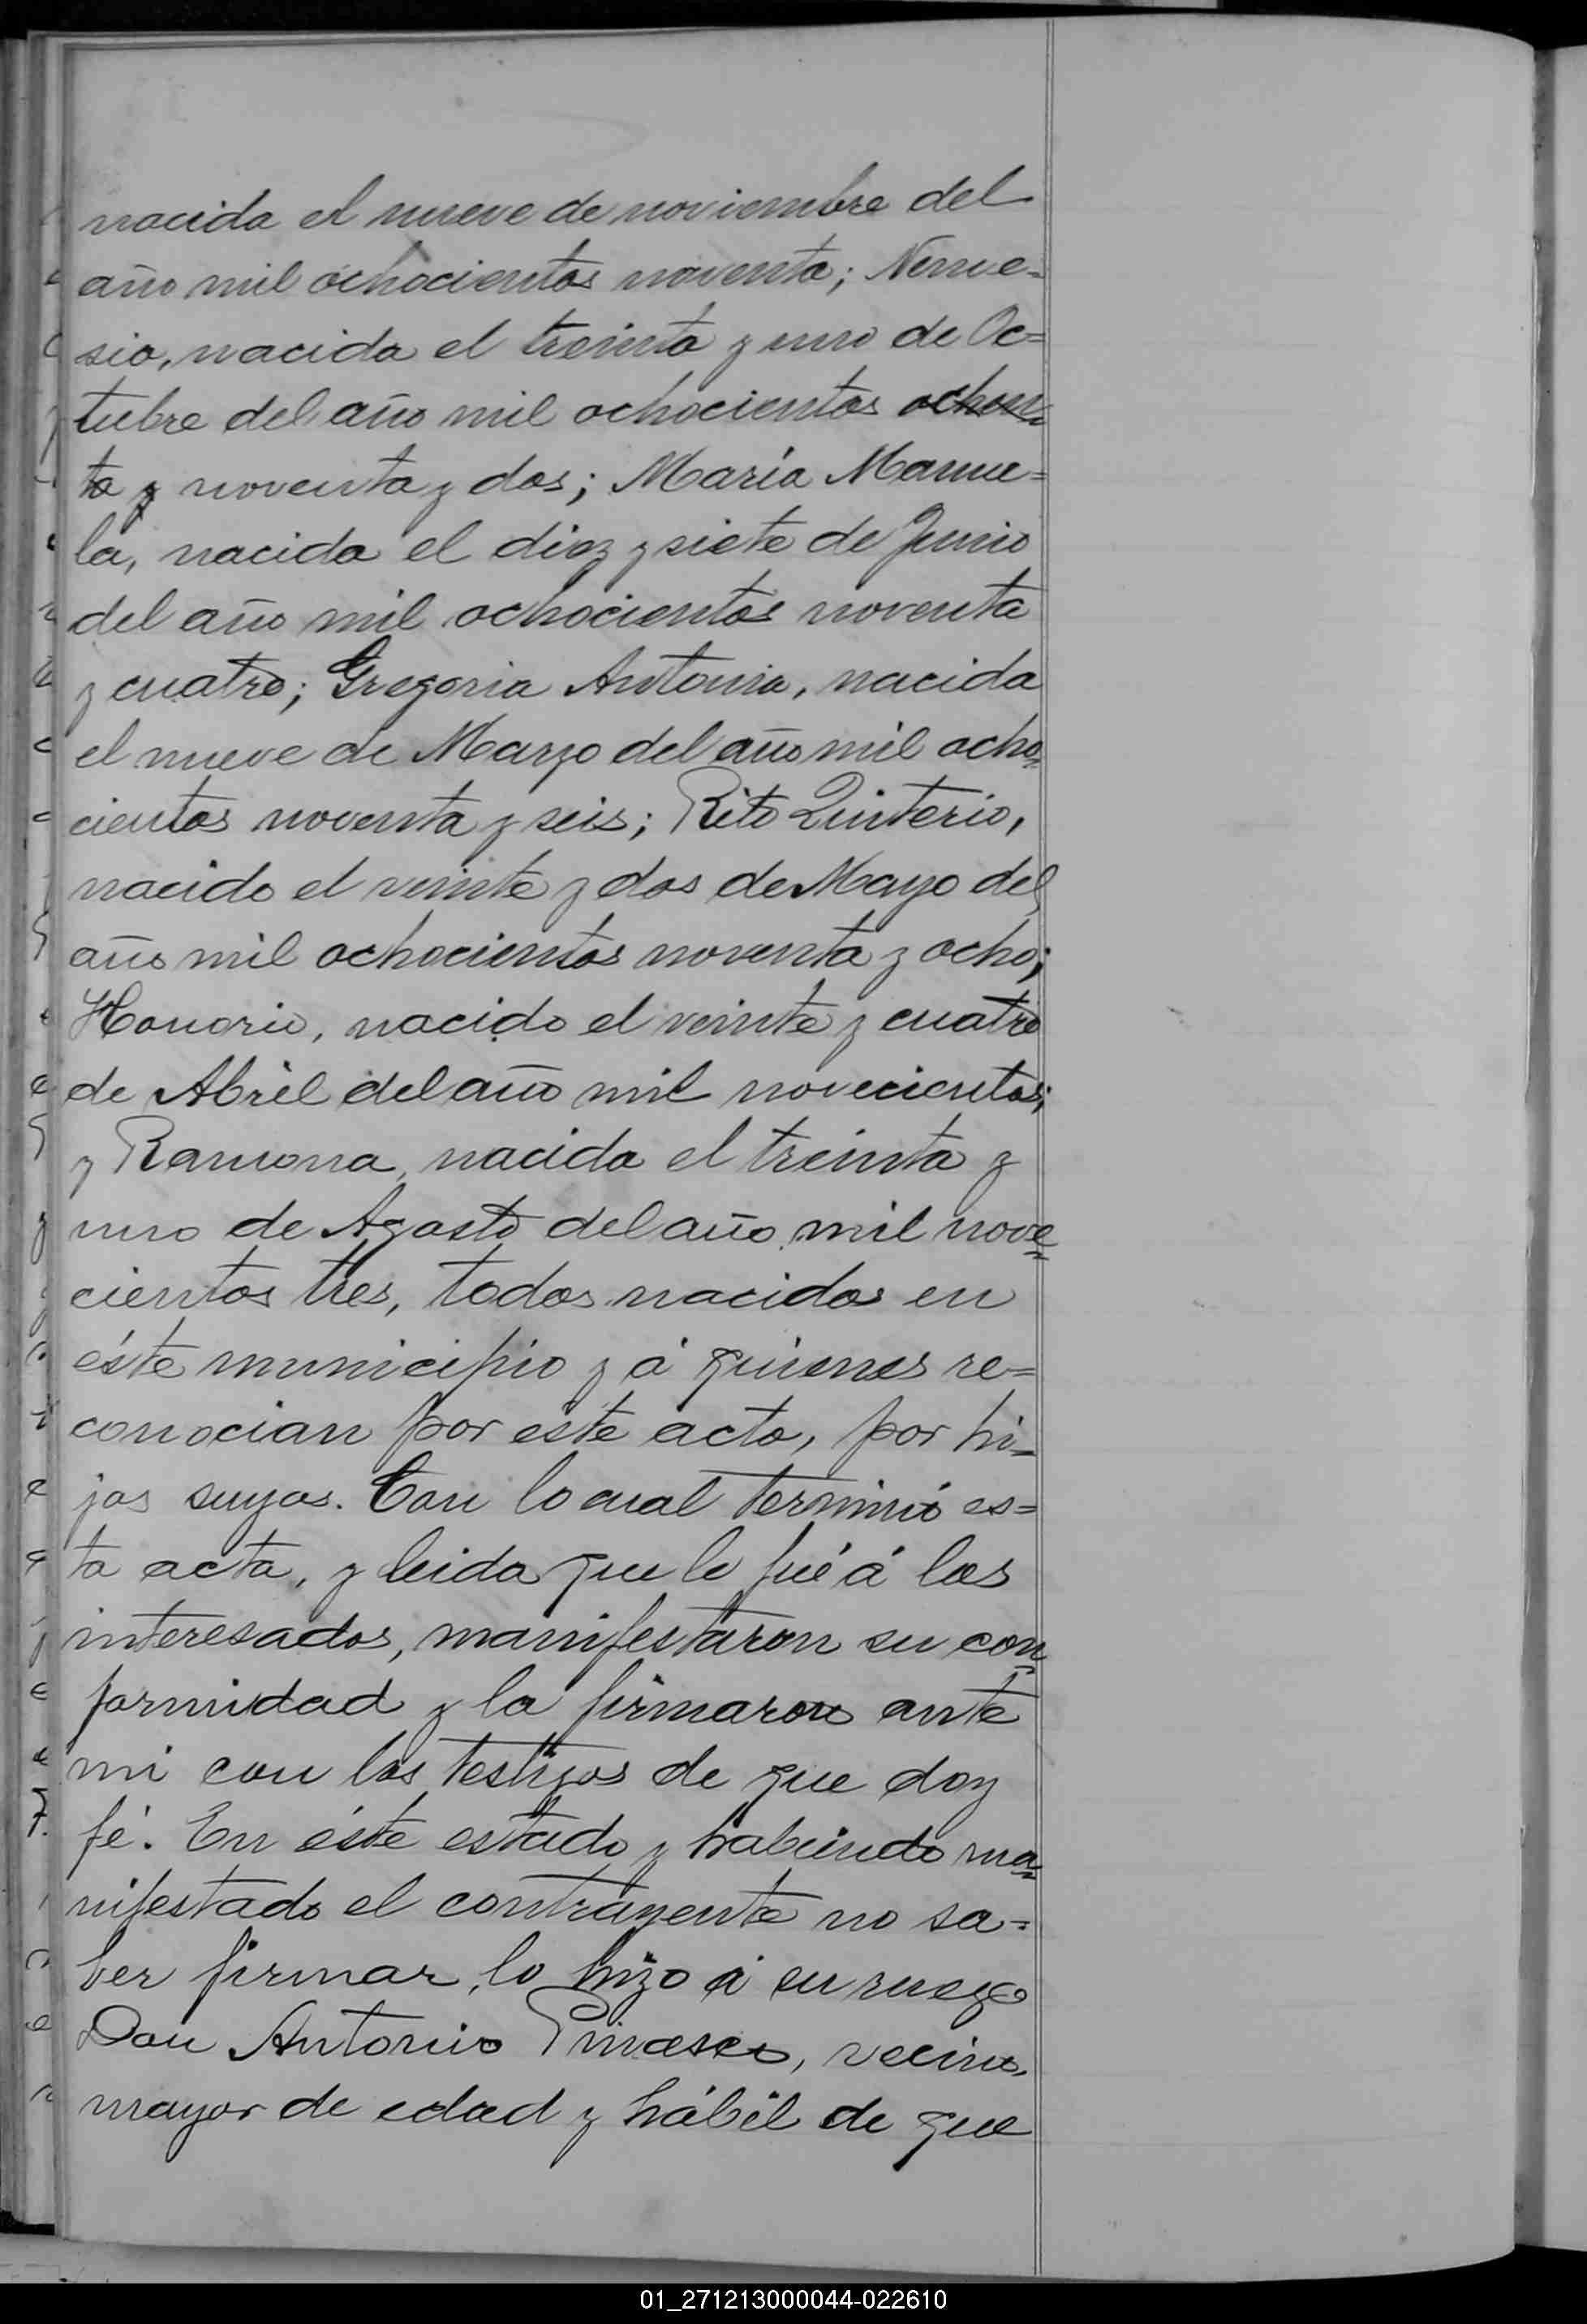 nacida el nueve de noviembre del
año mil ochocientos noventa; Neme=
sia, nacida el treinta y uno de Oc=
tubre del año mil ochocientos ochen=
ta y noventa y dos; María Manue=
la, nacida el diez y siete de Junio
del año mil ochocientos noventa
y cuatro; Gregoria Antonia, nacida
el nueve de Marzo del año mil ocho=
cientos noventa y seis; Rito Quinterio,
nacido el veinte y dos de Mayo del
año mil ochocientos noventa y ocho;
Honorio, nacido el veinte y cuatro
de Abril del año mil novecientos;
y Ramona, nacida el treinta y
uno de Agosto del año mil nove=
cientos tres, todos nacidos en
éste municipio y á quienes re=
conocian por este acto, por hi=
jos suyos. Con lo cual terminó es=
ta acta, y leida que le fué á los
interesados, manifestaron su con=
formidad y la firmaron ante
mi con los testigos de que doy
fé. En éste estado y habiendo ma=
nifestado el contrayente no sa=
ber firmar, lo hizo á su ruego
Don Antonio, vecino,
mayor de edad y hábil de que
01_271213000044-022610